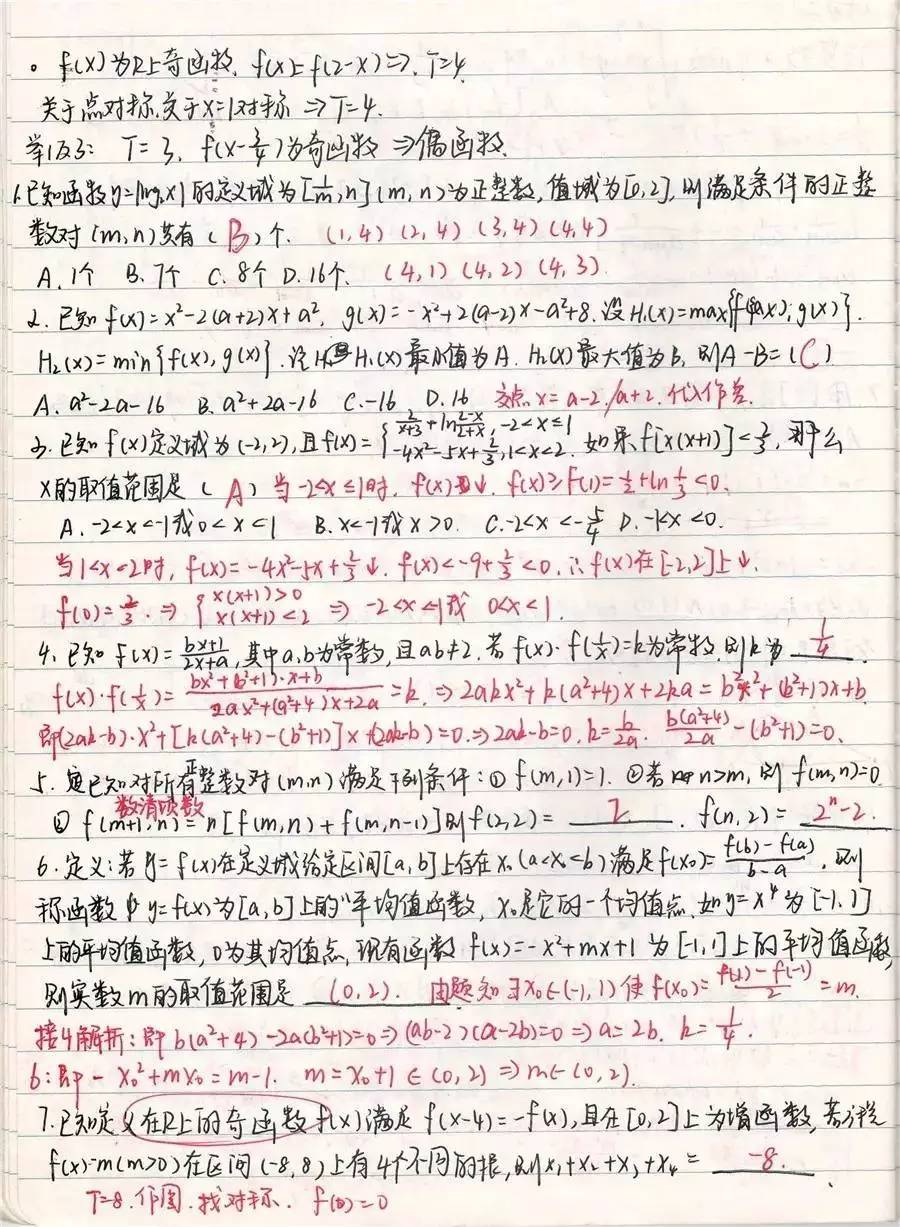 。f(x)为R上奇函数. f(x)=f(2-x)⇒. T=4.
关于点对称.关于x=1对称 ⇒T=4.
举1反3: T=3. f(x-3/4)为奇函数 ⇒偶函数.
1.已知函数y=|log₂x|的定义域为[1/m,n](m,n)为正整数,值域为[0,2],则满足条件的正整
数对(m,n)共有(B)个. (1,4) (2,4) (3,4) (4,4)
A.1个 B.7个 C.8个 D.16个. (4,1) (4,2) (4,3).
2.已知f(x)=x²-2(a+2)x+a², g(x)=-x²+2(a-2)x-a²+8.设H₁(x)=max{f(x);g(x)}.
H₂(x)=min{f(x),g(x)}.记H₁(x)最小值为A. H₂(x)最大值为B,则A-B=(C)
A. a²-2a-16 B. a²+2a-16 C.-16 D.16 交点x=a-2/a+2.代入作差.
3.已知f(x)定义域为(-2,2),且f(x)={2/(x+3)+ln(2-x)/(2+x),-2<x≤1 -4x²-5x+2/3,1<x<2. 如果f[x(x+1)]<2/3,那么
x的取值范围是(A)当-2<x≤1时. f(x)↓. f(x)≥f(1)=1/2+ln1/3<0.
A.-2<x<-1或0<x<1 B.x<-1或x>0. C.-2<x<-5/4 D.-1<x<0.
当1<x<2时, f(x)=-4x²-5x+2/3↓. f(x)<-9+2/3<0.∴f(x)在[-2,2]上↓
f(0)=2/3.⇒{x(x+1)>0 x(x+1)<2 ⇒ -2<x<-1或 0<x<1.
4.已知f(x)=(bx+1)/(2x+a),其中a,b为常数,且ab≠2.若f(x)·f(1/x)=k为常数.则k为 1/4.
f(x)·f(1/x)=(bx²+(b²+1)·x+b)/(2ax²+(a²+4)x+2a)=k.⇒2akx²+k(a²+4)x+2ka=b²x²+(b²+1)x+b.
即(2ak-b)·x²+[k(a²+4)-(b²+1)]x+(2ak-b)=0.⇒2ak-b=0.k=b/2a. b(a²+4)/2a-(b²+1)=0.
5.已知对所有正整数对(m,n)满足下列条件:①f(m,1)=1.②若n>m,则f(m,n)=0
数清项数
③f(m+1,n)=n[f(m,n)+f(m,n-1)]则f(2,2)= 2. f(n,2)= 2ⁿ-2.
6.定义:若y=f(x)在定义域给定区间[a,b]上存在x₀(a<x₀<b)满足f(x₀)=(f(b)-f(a))/(b-a),则
称函数y=f(x)为[a,b]上的"平均值函数,x₀是它的一个均值点.如y=x⁴为[-1,1]
上的平均值函数,0为其均值点,现有函数f(x)=-x²+mx+1为[-1,1]上的平均值函数,
则实数m的取值范围是 (0,2). 由题知∃x₀∈(-1,1)使f(x₀)=(f(1)-f(-1))/2=m.
接4解析:即b(a²+4)-2a(b²+1)=0⇒(ab-2)(a-2b)=0⇒a=2b. k=1/4.
6:即-x₀²+mx₀=m-1. m=x₀+1∈(0,2)⇒m∈(0,2).
7.已知定义在R上的奇函数f(x)满足f(x-4)=-f(x),且在[0,2]上为增函数,若方程
f(x)=m(m>0)在区间(-8,8)上有4个不同的根,则x₁+x₂+x₃+x₄= -8.
T=8.作图.找对称. f(0)=0